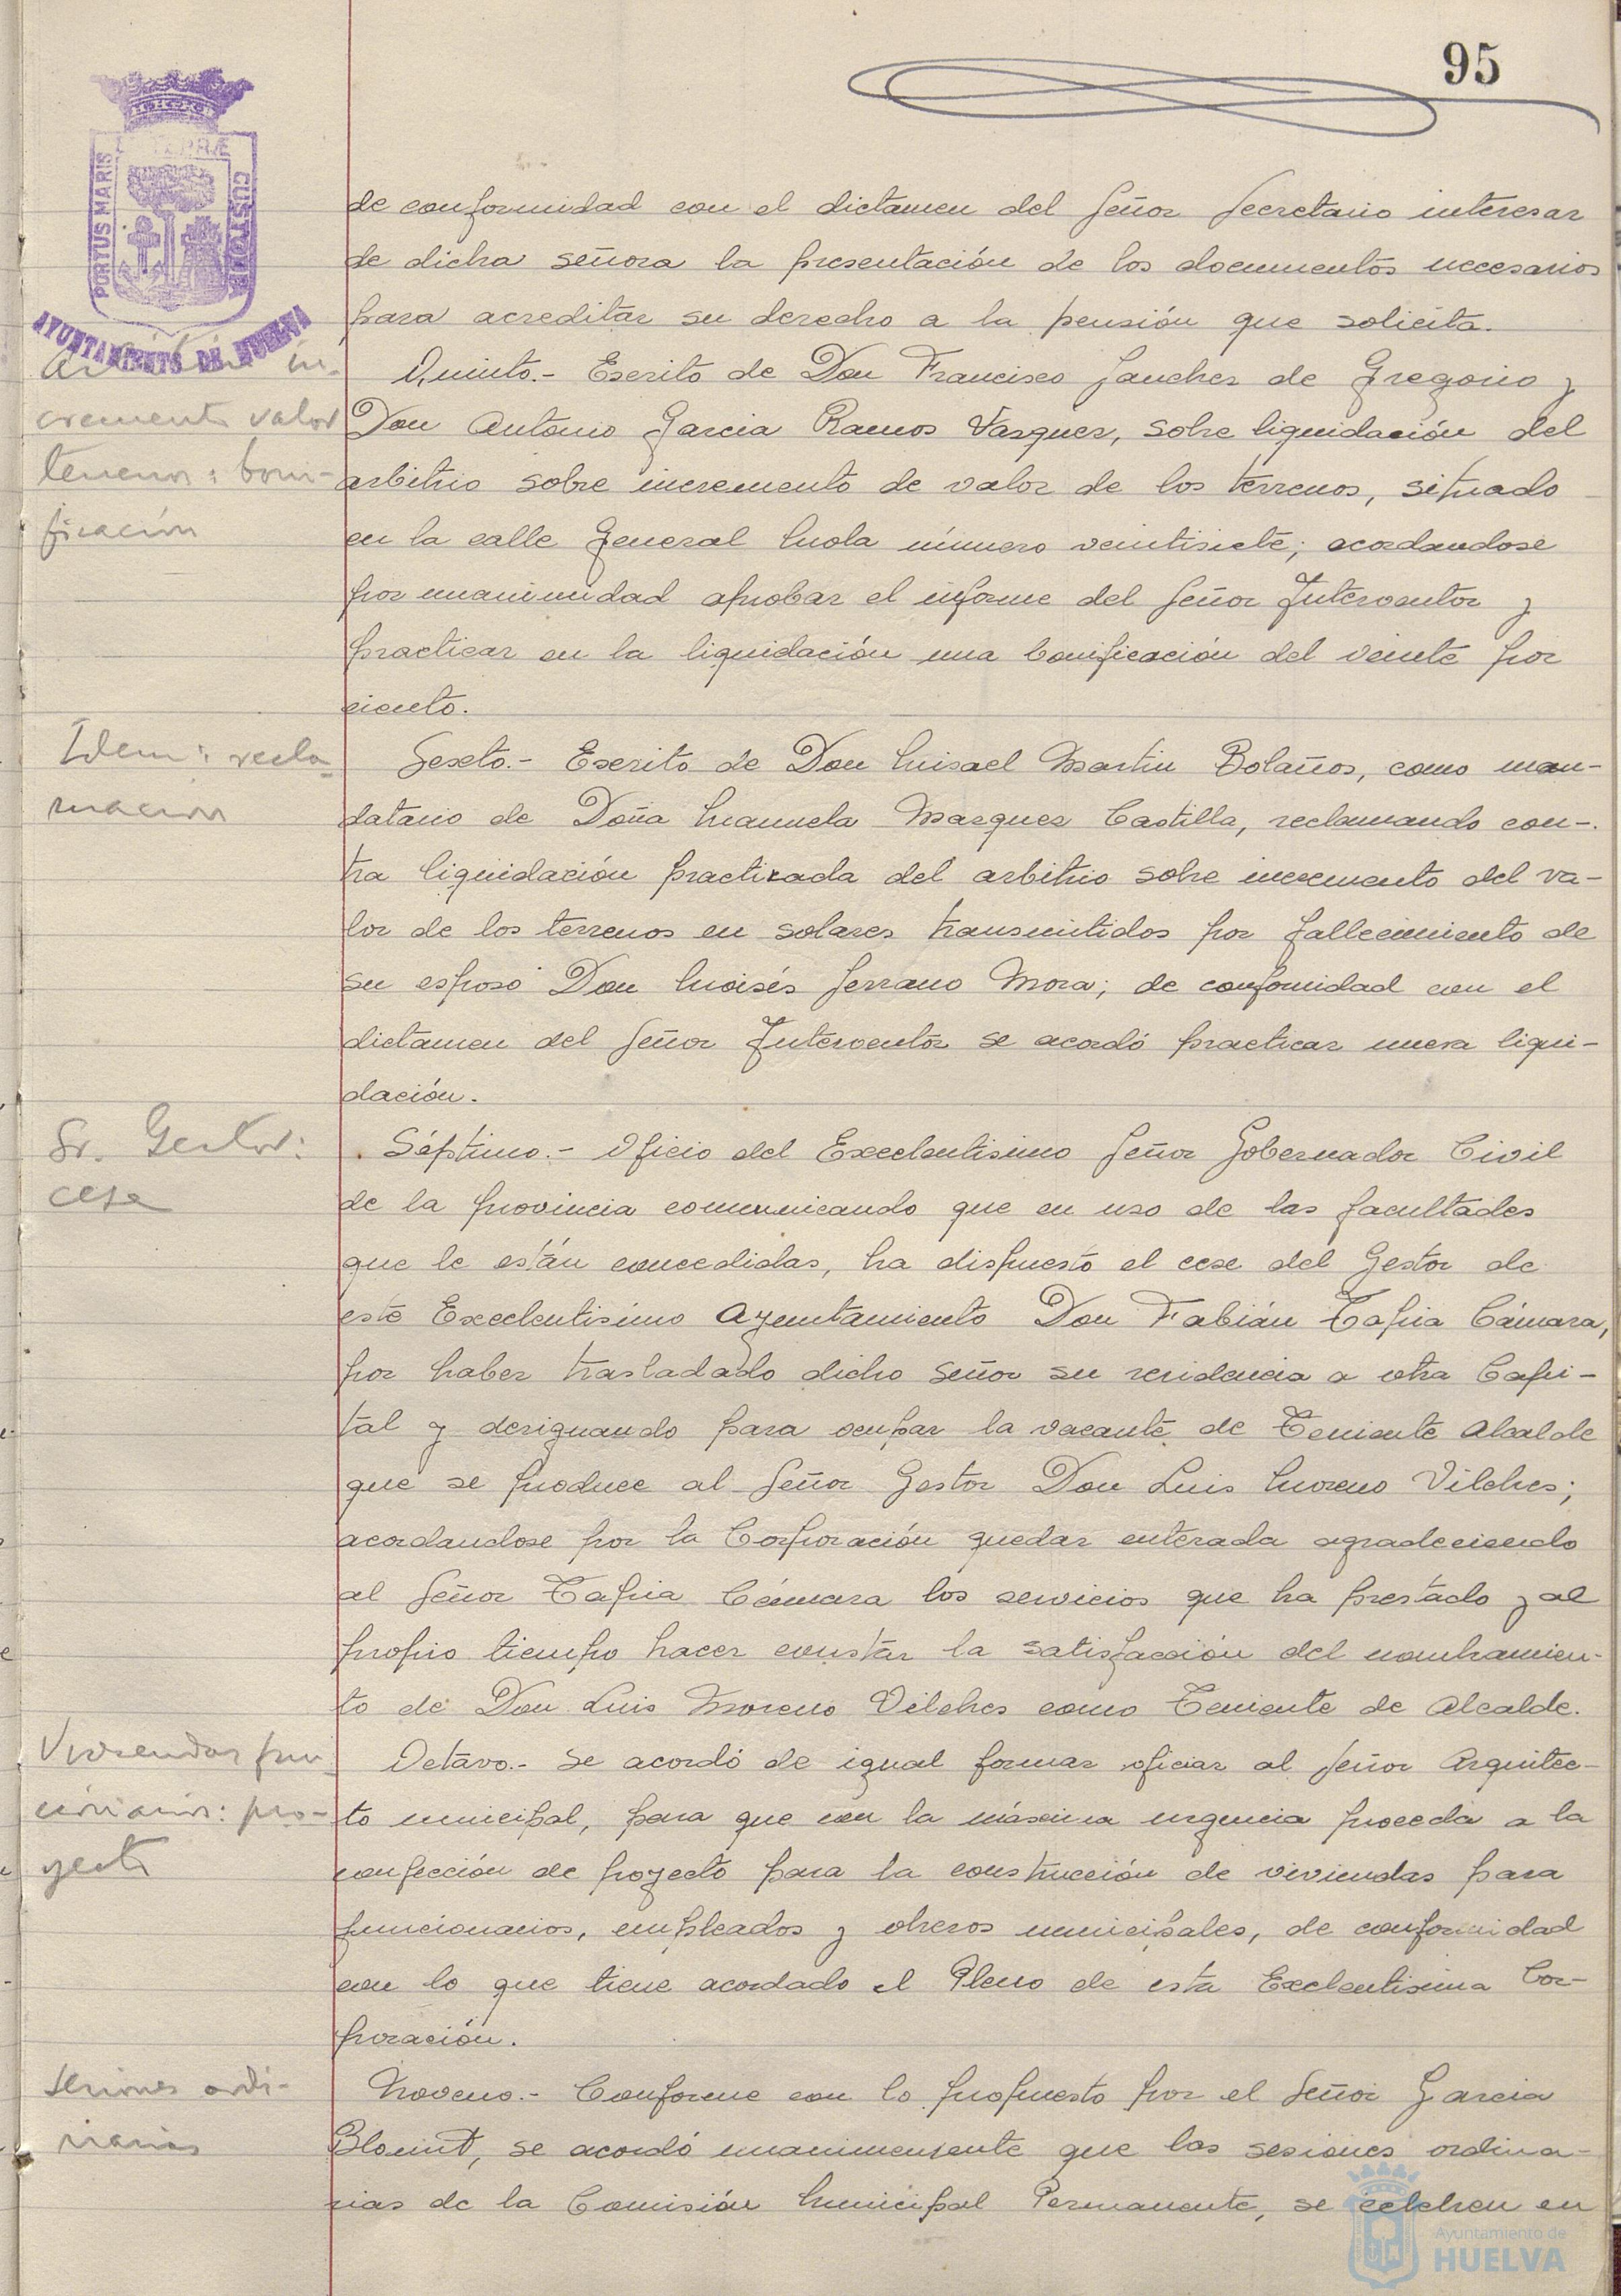 95
PORTUS MARIS
ET TERRÆ
CUSTODIA
AYUNTAMIENTO DE HUELVA
de conformidad con el dictamen del Señor Secretario interesar
de dicha señora la presentación de los documentos necesarios
para acreditar su derecho a la pensión que solicita.
Arbitrio in-
cremento valor
terrenos: boni-
ficación
Quinto.- Escrito de Don Francisco Sanchez de Gregorio y
Don Antonio Garcia Ramos Vazquez, sobre liquidación del
arbitrio sobre incremento de valor de los terrenos, situado
en la calle General Mola número veintisiete; acordandose
por unanimidad aprobar el informe del Señor Interventor y
practicar en la liquidación una bonificación del veinte por
ciento.
Idem: recla-
macion
Sexto.- Escrito de Don Misael Martin Bolaños, como man-
datario de Doña Manuela Marquez Castilla, reclamando con-
tra liquidación practicada del arbitrio sobre incremento del va-
lor de los terrenos en solares transmitidos por fallecimiento de
su esposo Don Moisés Serrano Mora; de conformidad con el
dictamen del Señor Interventor se acordó practicar nueva liqui-
dación.
Sr. Gestor:
cese
Séptimo.- Oficio del Excelentisimo Señor Gobernador Civil
de la provincia comunicando que en uso de las facultades
que le están concedidas, ha dispuesto el cese del Gestor de
este Excelentisimo Ayuntamiento Don Fabián Tapia Cámara,
por haber trasladado dicho señor su residencia a otra Capi-
tal y designando para ocupar la vacante de Teniente Alcalde
que se produce al Señor Gestor Don Luis Moreno Vilches;
acordandose por la Corporación quedar enterada agradeciendo
al Señor Tapia Cámara los servicios que ha prestado y al
propio tiempo hacer constar la satisfacción del nombramien-
to de Don Luis Moreno Vilches como Teniente de Alcalde.
Viviendas fun-
cionarios: pro-
yecto
Octavo.- Se acordó de igual forma oficiar al Señor Arquitec-
to municipal, para que con la máxima urgencia proceda a la
confección de proyecto para la construcción de viviendas para
funcionarios, empleados y obreros municipales, de conformidad
con lo que tiene acordado el Pleno de esta Exclentisima Cor-
poración.
Sesiones ordi-
narias
Noveno.- Conforme con lo propuesto por el Señor Garcia
Blount, se acordó unanimemente que las sesiones ordina-
rias de la Comisión Municipal Permanente, se celebren en
Ayuntamiento de
HUELVA